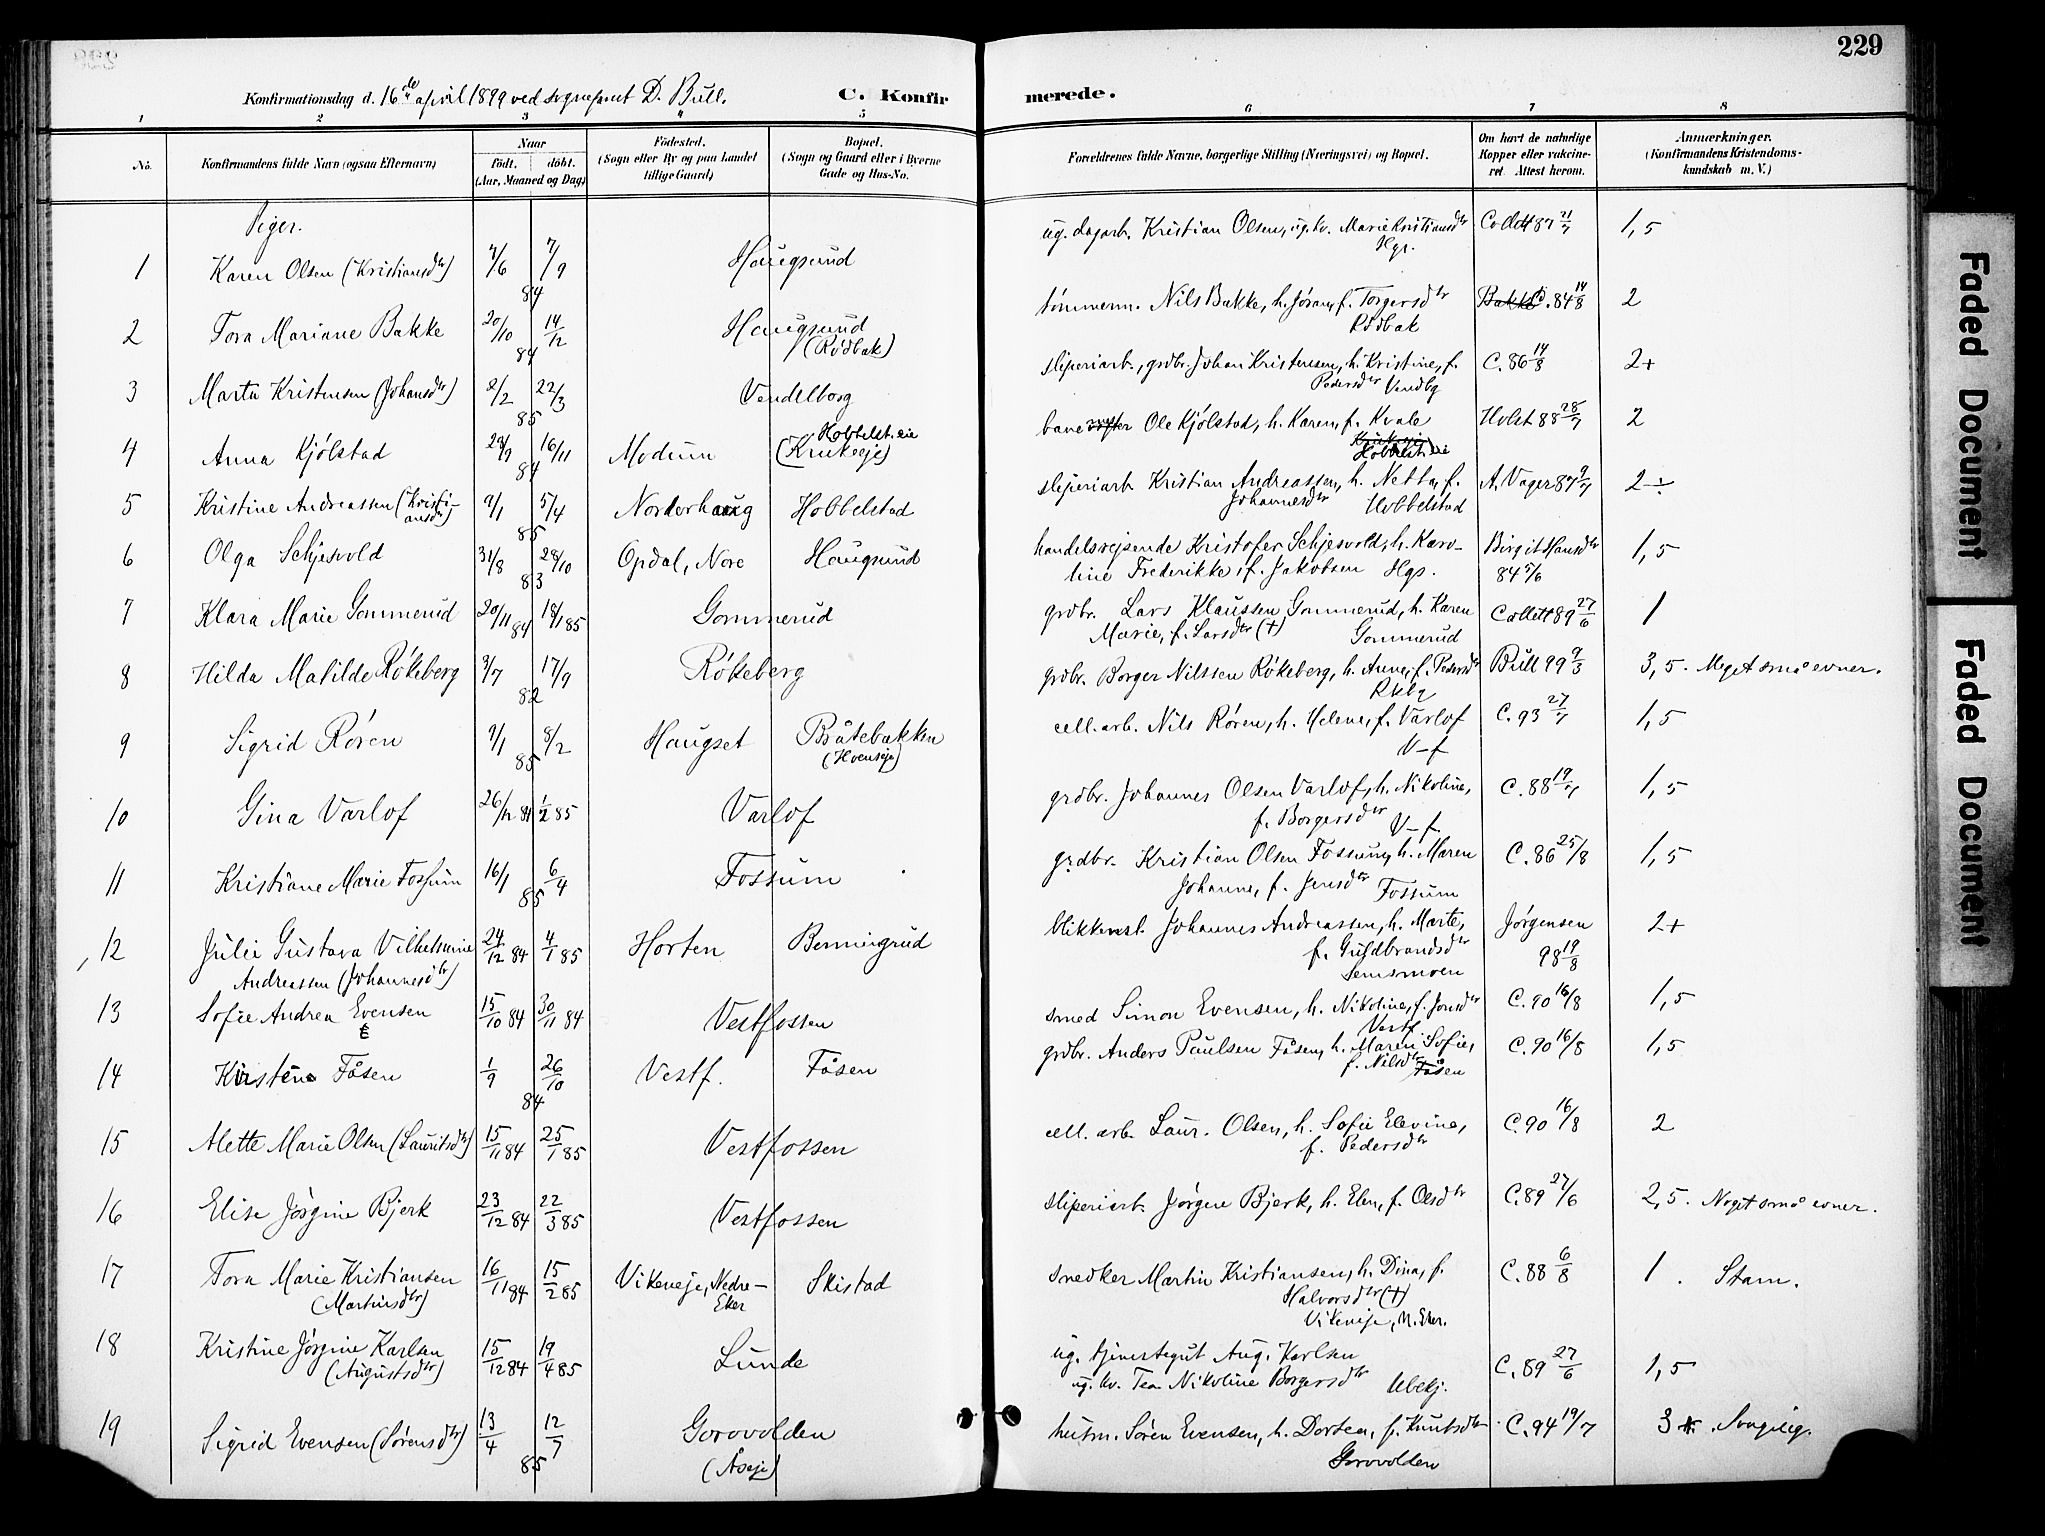 229
Konfirmationsdag d. 16de april 1899 ved sognepræst D. Bull.
C. Konfirmerede.
1 2 3 4 5 6 7 8
No. Konfirmandens fulde Navn (ogsaa Efternavn) Naar født, døbt. (Aar, Maaned og Dag) Fødested. (Sogn eller By og paa Landet tillige Gaard) Bopæl. (Sogn og Gaard eller i Byerne Gade og Hus-No. Forældrenes fulde Navne, borgerlige Stilling (Næringsvei) og Bopæl. Om havt de naturlige Kopper eller vakcineret. Attest herom. Anmærkninger. (Konfirmandens Kristendomskundskab m. V.)
Piger.
1 Karen Olsen (Kristiansdtr) 4/6 7/9 84 Haugsund ug. dagarb. Kristian Olsen, ug. kv. Marie Kristiansdtr Hgs. Collett 87 21/7 1,5
2 Tora Mariane Bakke 20/10 14/12 84 Haugsund (Rødbak) tømmerm. Nils Bakke, h. Jøran, f. Torgersdtr Rødbak C. 84 14/8 2
3 Marta Kristensen (Johansdtr) 2/2 22/3 85 Vendelborg sliperiarb., grdbr. Johan Kristensen, h. Kristine, f. Pedersdtr Vendbg C. 86 14/8 2+
4 Anna Kjølstad 29/9 16/11 84 Modum Hobbelst. eie (Krukeeje) bane Ole Kjølstad, h. Karen, f. Kvale Hobbelst. eie Holst 88 28/7 2
5 Kristine Andreassen (Kristiansdtr) 9/1 5/4 85 Norderhaug Hobbelstad sliperiarb. Kristian Andreassen, h. Netta, f. Johannesdtr Hobbelstad A. Vager 87 9/7 2÷
6 Olga Schjesvold 31/8 28/10 83 Opdal, Nore Haugsund handelsrejsende Kristofer Schjesvold, h. Karoline Frederikke, f. Jakobsen Hgs. Birgit Hansdtr 84 5/6 1,5
7 Klara Marie Gommerud 20/11 84 18/1 85 Gommerud grdbr. Lars Klaussen Gommerud, h. Karen Marie, f. Larsdtr (†) Gommerud Collett 89 27/6 1
8 Hilda Matilde Røkeberg 3/7 17/9 82 Røkeberg grdbr. Borger Nilssen Røkeberg, h. Anne, f. Pedersdtr Rkbg Bull 99 9/3 3,5. Meget små evner.
9 Sigrid Røren 9/1 8/2 85 Haugset Bråtebakken (Hoenseje) cell. arb. Nils Røren, h. Helene, f. Varlof V–f C. 93 27/7 1,5
10 Gina Varlof 26/12 84 1/2 85 Varlof grdbr. Johannes Olsen Varlof, h. Nikoline, f. Borgersdtr V–f. C. 88 19/7 1,5
11 Kristiane Marie Fossum 16/1 6/4 85 Fossum grdbr. Kristian Olsen Fossum, h. Maren Johanne, f. Jensdtr Fossum C. 86 25/8 1,5
12 Julie Gustava Vilhelmine Andreassen (Johannesdtr) 24/12 84 4/1 85 Horten Bermingrud blikkensl. Johannes Andreassen, h. Marte, f. Guldbrandsdtr Semsmoen Jørgensen 98 19/8 2+
13 Sofie Andrea Evensen 15/10 84 30/11 84 Vestfossen smed Simon Evensen, h. Nikoline, f. Jonsdtr Vestf. C. 90 16/8 1,5
14 Kirstene Fåsen 1/9 26/10 84 Vestf. Fåsen grdbr. Anders Paulsen Fåsen, h. Maren Sofie, f. Nilsdtr Fåsen C. 90 16/8 1,5
15 Alette Marie Olsen (Lauritsdtr) 15/11 84 25/1 85 Vestfossen cell. arb. Laur. Olsen, h. Sofie Elevine, f. Pedersdtr C. 90 16/8 2
16 Elise Jørgine Bjerk 23/12 84 22/3 85 Vestfossen sliperiarb. Jørgen Bjerk, h. Elen, f. Olsdtr C. 89 27/6 2,5. Noget små evner.
17 Tora Marie Kristiansen (Martinsdtr) 16/11 84 15/2 85 Vikeneje, Nedre-Eker Skistad snedker Martin Kristiansen, h. Dina, f. Halvorsdtr (†) Vikeneje, N. Eker. C. 88 6/8 1. Stam.
18 Kristine Jørgine Karlsen (Augustsdtr) 15/12 84 19/4 85 Lunde ug. tjenestegut Aug. Karlsen ug. kv. Tea Nikoline Borgersdtr Ubekj. C. 89 27/6 1,5
19 Sigrid Evensen (Sørensdtr) 13/4 12/7 85 Gorovolden (Åseje) husm. Søren Evensen, h. Dortea, f. Knutsdtr Gorovolden C. 94 19/7 3 Svagelig.
Faded Document
Faded Document